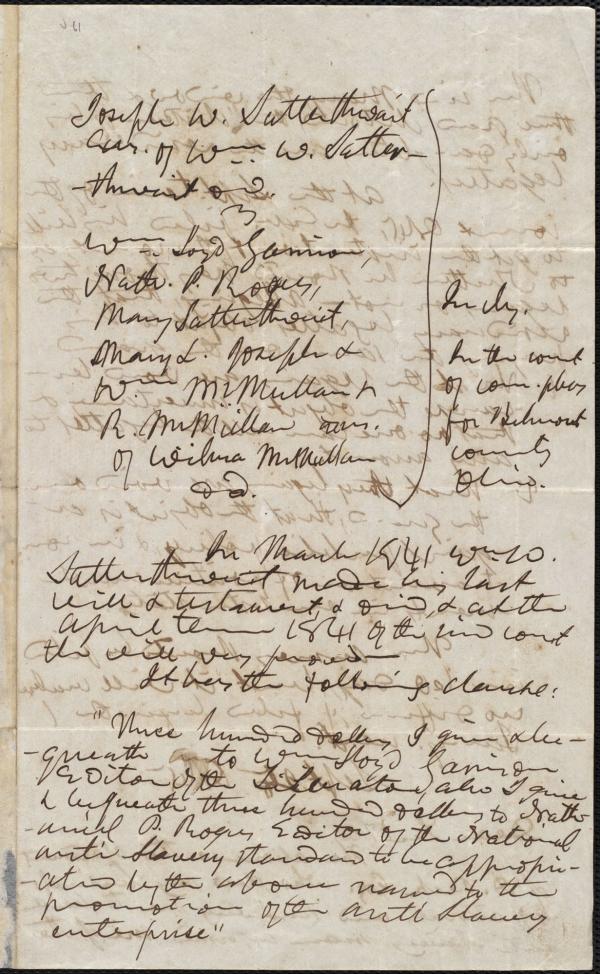 Joseph W. Satterthwait
Exr. of Wm. W. Satter-
-thwait decd.
vs
Wm. Loyd Garrison,
Nath. P. Rogers,
Mary Satterthwait,
Mary L. Joseph &
Wm McMullan &
R. McMullan exrs.
of Wilma McMullan
decd.
In chy.
In the court
of com. pleas
for Belmont
county
Ohio.
In March 1841 Wm W.
Satterthwait made his last
will & testament, & died, & at the
April term 1841 of the said court
the will was proved
It has the following clause:
"Three hundred dollars I give & be-
-queath to Wm Lloyd Garrison
Editor of the Liberator, also I give
& bequeath three hundred dollars to Nath-
-aniel P. Rogers Editor of the National
anti Slavery Standard to be appropri-
-ated by the above named to the
promotion of the anti Slavery
enterprise"